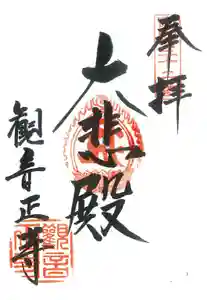 奉拝
大悲殿
観音正寺